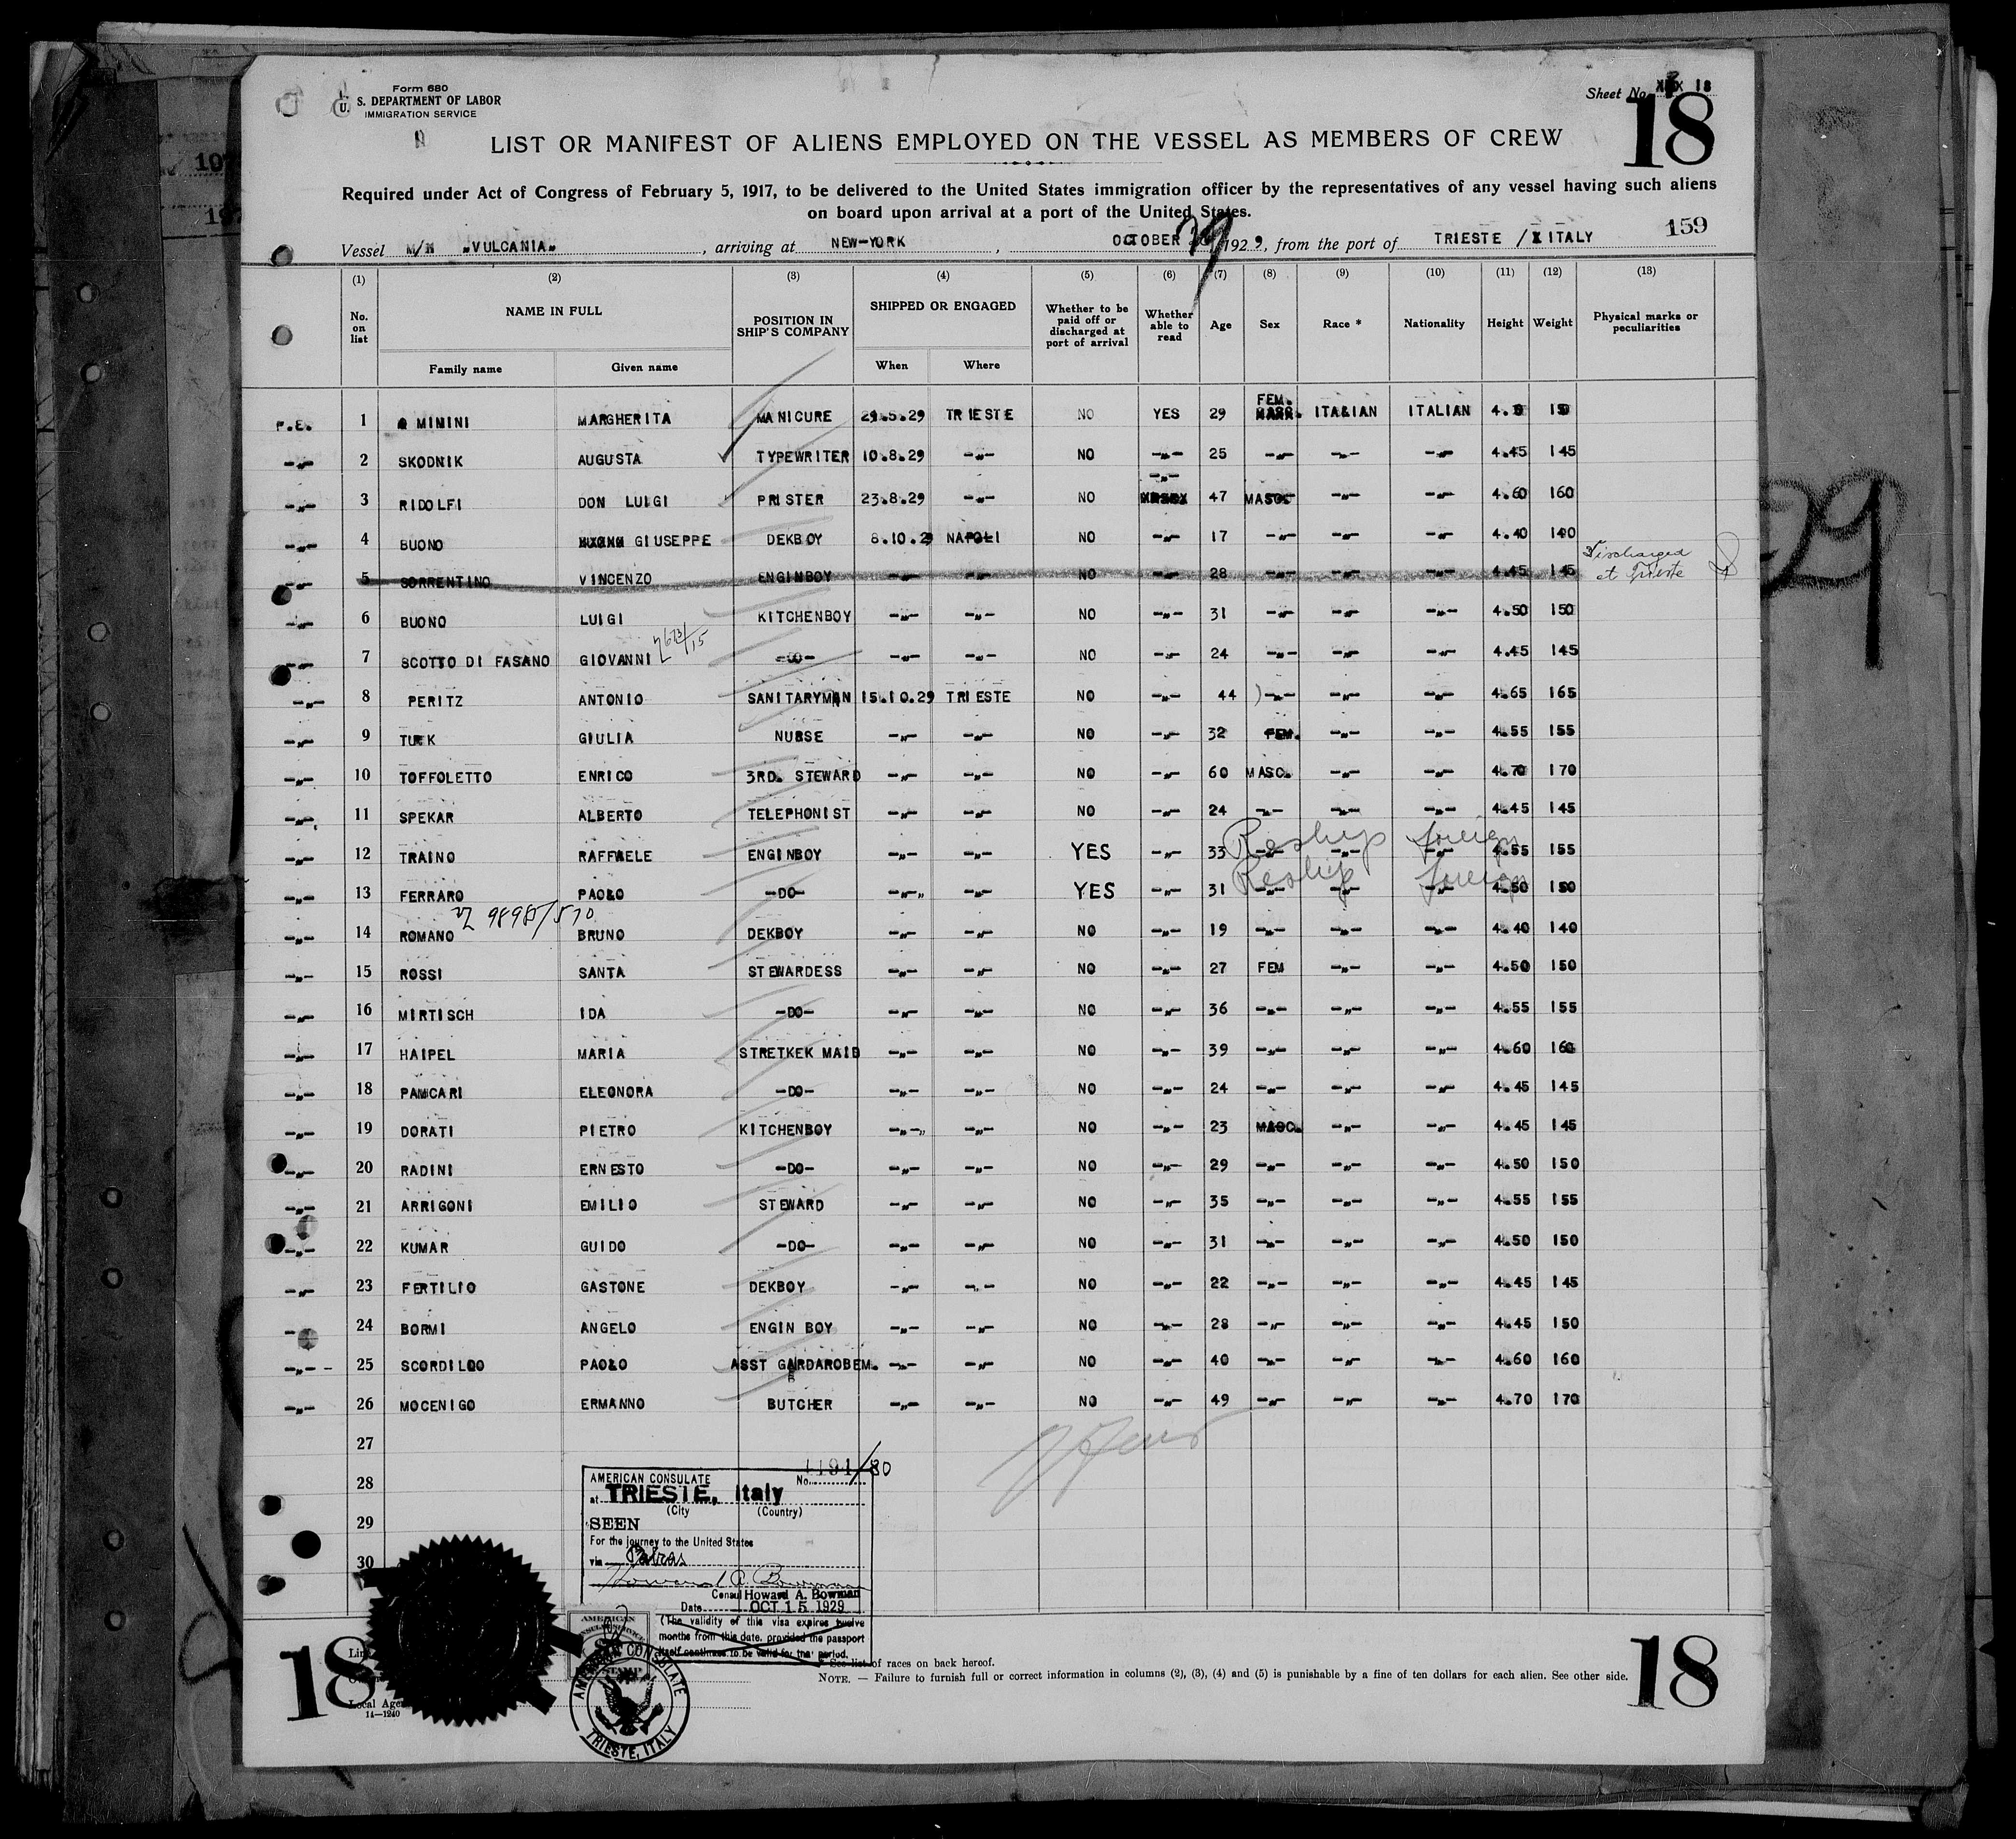 Form 680
U. S. DEPARTMENT OF LABOR
IMMIGRATION SERVICE
Sheet No. 18
18
LIST OR MANIFEST OF ALIENS EMPLOYED ON THE VESSEL AS MEMBERS OF CREW
Required under Act of Congress of February 5, 1917, to be delivered to the United States immigration officer by the representatives of any vessel having such aliens
on board upon arrival at a port of the United States.
159
Vessel M/N „VULCANIA„, arriving at NEW-YORK, OCTOBER 29 1929, from the port of TRIESTE / ITALY
(1) (2) (3) (4) (5) (6) (7) (8) (9) (10) (11) (12) (13)
No. on list NAME IN FULL Family name Given name POSITION IN SHIP'S COMPANY SHIPPED OR ENGAGED When Where Whether to be paid off or discharged at port of arrival Whether able to read Age Sex Race * Nationality Height Weight Physical marks or peculiarities
P.E. 1 MININI MARGHERITA MANICURE 29.5.29 TRIESTE NO YES 29 FEM. ITALIAN ITALIAN
-„- 2 SKODNIK AUGUSTA TYPEWRITER 10.8.29 -„- NO -„- 25 -„- -„- -„- 4.45 145
-„- 3 RIDOLFI DON LUIGI PRISTER 23.8.29 -„- NO -„- 47 MASC- -„- -„- 4.60 160
-„- 4 BUONO GIUSEPPE DEKBOY 8.10.29 NAPOLI NO -„- 17 -„- -„- -„- 4.40 140
5 SORRENTINO VINCENZO ENGINBOY -„- -„- NO -„- 28 -„- -„- -„- 4.45 145 Discharged at Trieste
-„- 6 BUONO LUIGI KITCHENBOY -„- -„- NO -„- 31 -„- -„- -„- 4.50 150
-„- 7 SCOTTO DI FASANO GIOVANNI -DO- -„- -„- NO -„- 24 -„- -„- -„- 4.45 145
-„- 8 PERITZ ANTONIO SANITARYMAN 15.10.29 TRIESTE NO -„- 44 )-„- -„- -„- 4.65 165
-„- 9 TURK GIULIA NURSE -„- -„- NO -„- 32 FEM. -„- -„- 4.55 155
-„- 10 TOFFOLETTO ENRICO 3RD. STEWARD -„- -„- NO -„- 60 MASC. -„- -„- 4.70 170
-„- 11 SPEKAR ALBERTO TELEPHONIST -„- -„- NO -„- 24 -„- -„- -„- 4.45 145
-„- 12 TRAINO RAFFAELE ENGINBOY -„- -„- YES -„- 33 -„- -„- -„- 4.55 155 Reship foreign
-„- 13 FERRARO PAOLO -DO- -„- -„- YES -„- 31 -„- -„- -„- 4.50 150 Reship foreign
-„- 14 ROMANO BRUNO DEKBOY -„- -„- NO -„- 19 -„- -„- -„- 4.40 140
-„- 15 ROSSI SANTA STEWARDESS -„- -„- NO -„- 27 FEM -„- -„- 4.50 150
-„- 16 MIRTISCH IDA -DO- -„- -„- NO -„- 36 -„- -„- -„- 4.55 155
-„- 17 HAIPEL MARIA STRETKEK MAID -„- -„- NO -„- 39 -„- -„- -„- 4.60 160
-„- 18 PAMCARI ELEONORA -DO- -„- -„- NO -„- 24 -„- -„- -„- 4.45 145
-„- 19 DORATI PIETRO KITCHENBOY -„- -„- NO -„- 23 MASC. -„- -„- 4.45 145
-„- 20 RADINI ERNESTO -DO- -„- -„- NO -„- 29 -„- -„- -„- 4.50 150
-„- 21 ARRIGONI EMILIO STEWARD -„- -„- NO -„- 35 -„- -„- -„- 4.55 155
-„- 22 KUMAR GUIDO -DO- -„- -„- NO -„- 31 -„- -„- -„- 4.50 150
-„- 23 FERTILIO GASTONE DEKBOY -„- -„- NO -„- 22 -„- -„- -„- 4.45 145
-„- 24 BORMI ANGELO ENGIN BOY -„- -„- NO -„- 28 -„- -„- -„- 4.45 150
-„- 25 SCORDILDO PAOLO ASST GARDAROBEM. -„- -„- NO -„- 40 -„- -„- -„- 4.60 160
-„- 26 MOCENIGO ERMANNO BUTCHER -„- -„- NO -„- 49 -„- -„- -„- 4.70 170
27
28
29
30
AMERICAN CONSULATE No. 1191/80
at TRIESTE, Italy
(City (Country)
SEEN
For the journey to the United States
via Patras
Howard A. Bowman
Consul Howard A. Bowman
Date OCT 15 1929
(The validity of this visa expires twelve
months from this date, provided the passport
itself continues to be valid for that period.
AMERICAN CONSULATE
TRIESTE, ITALY
* See list of races on back hereof.
NOTE. — Failure to furnish full or correct information in columns (2), (3), (4) and (5) is punishable by a fine of ten dollars for each alien. See other side.
Local Age
14—1240
18
18
29